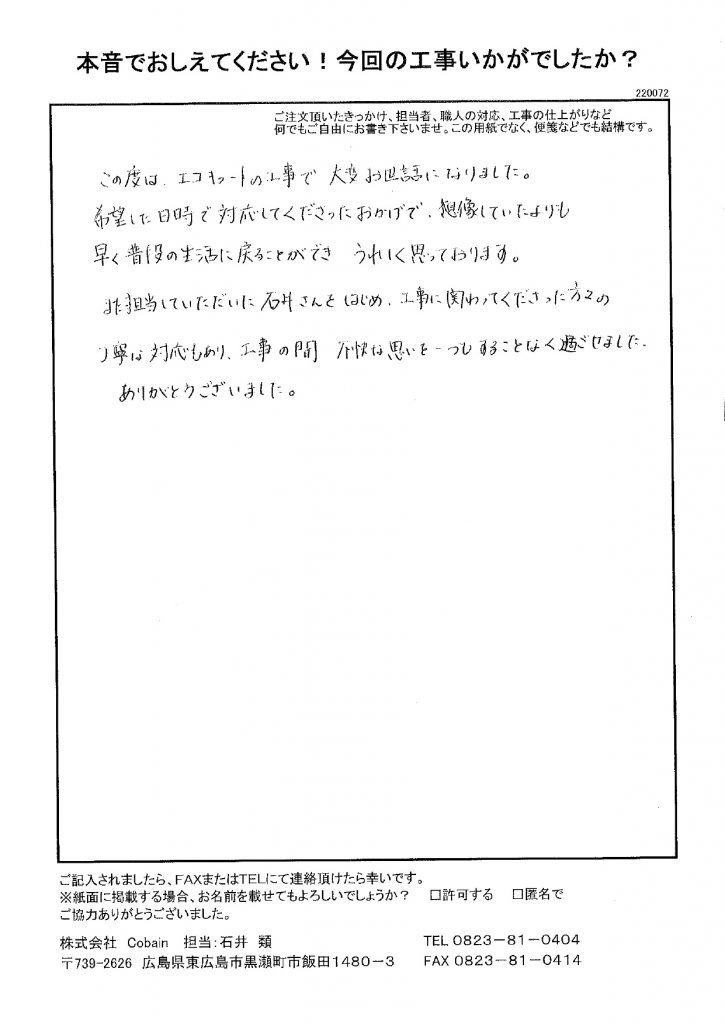 本音でおしえてください！今回の工事いかがでしたか？
220072
ご注文頂いたきっかけ、担当者、職人の対応、工事の仕上がりなど
何でもご自由にお書き下さいませ。この用紙でなく、便箋などでも結構です。
この度は、エコキュートの工事で 大変お世話になりました。
希望した日時で対応してくださったおかげで、想像していたよりも
早く普段の生活に戻ることができ うれしく思っております。
また担当していただいた石井さんをはじめ、工事に関わってくださった方々の
丁寧な対応もあり、工事の間 不快な思いを一つもすることなく過ごせました。
ありがとうございました。
ご記入されましたら、FAXまたはTELにて連絡頂けたら幸いです。
※紙面に掲載する場合、お名前を載せてもよろしいでしょうか？ □許可する □匿名で
ご協力ありがとうございました。
株式会社 Cobain 担当：石井 類 TEL 0823－81－0404
〒739-2626 広島県東広島市黒瀬町市飯田1480－3 FAX 0823－81－0414